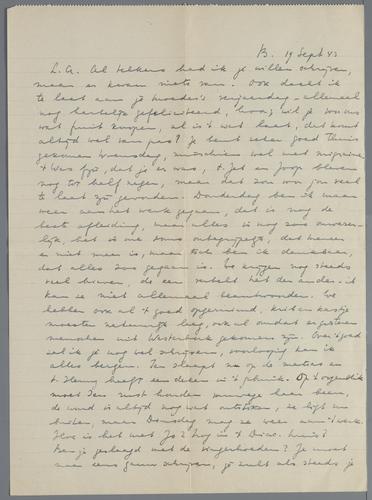 B. 19 Sept 43
L.A. Al telkens had ik je willen schrijven,
maar er kwam niets van. Ook dacht ik
te laat aan je moeder's verjaardag - allemaal
nog hartelijk gefeliciteerd, wil je
wat fruit kopen, al is 't wat laat, dat komt
altijd wel van pas? Je bent zeker goed thuis
gekomen Woensdag, misschien wel met migraine
't Was fijn, dat je er was, & Jet en Joop bleven
nog tot half negen, maar dat zou voor jou veel
te laat zijn geworden. Donderdag ben ik maar
weer aan het werk gegaan, dat is nog de
beste afleiding, maar alles is nog zoo onwerke-
lijk, het is me soms onbegrijpelijk, dat
er niet meer is, maar toch ben ik dankbaar,
dat alles zoo gegaan is. We krijgen nog steeds
veel brieven, de een vertelt het den ander. ik
kan ze niet allemaal beantwoorden. We
hebben ook al 't goed opgeruimd, krist en kastje
moesten natuurlijk leeg, ook al omdat er gisteren
menschen uit Westerbork gekomen zijn. Over 't goed
zal ik je nog wel schrijven, voorloopig kan ik
alles bergen. Ien slaapt nu op de matras en
Henny heeft een deken in 't gebruik. Op 't oogenblik
moet Iens rust houden vanwege haar been,
de wond is altijd nog wat ontstoken, ze ligt nu
buiten, maar Dinsdag mag ze weer aan 't werk.
Hoe is het met Jo? Nog in 't Diac. huis?
Ben je geslaagd met de vingerhoeden? Je moet
maar eens gauw schrijven, je zult als steeds je